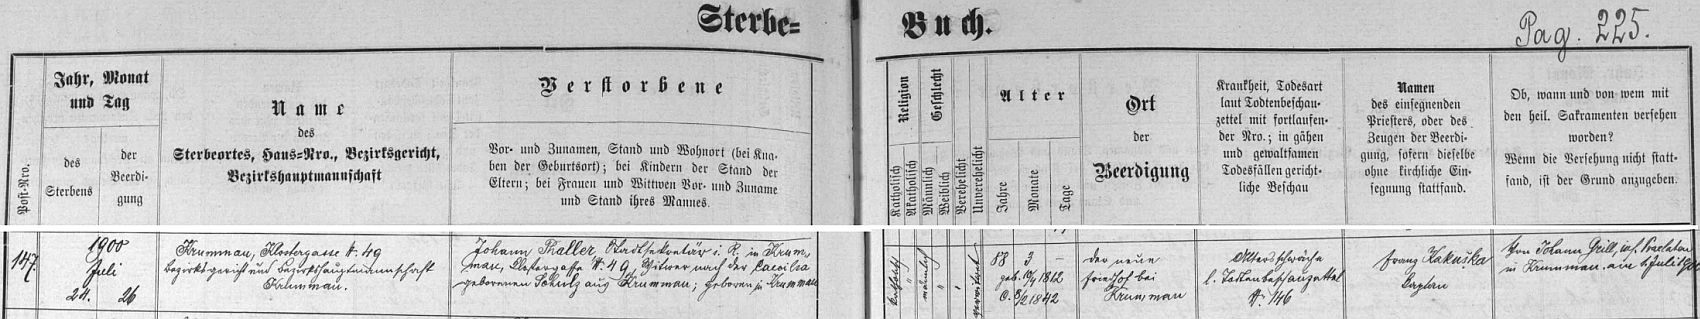 Sterbe= Buch.
Pag. 225.
Post-Nro.
Jahr, Monat
und Tag
des
Sterbens
der
Beerdi-
gung
Name
des
Sterbeortes, Haus=Nro., Bezirksgericht,
Bezirkshauptmannschaft
Verstorbene
Vor- und Zunamen, Stand und Wohnort (bei Kna-
ben der Geburtsort); bei Kindern der Stand der
Eltern; bei Frauen und Wittwen Vor- und Zuname
und Stand ihres Mannes.
Religion
Katholisch
Akatholisch
Geschlecht
Männlich
Weiblich
Verehelicht
Unverehelicht
Alter
Jahre
Monate
Tage
Ort
der
Beerdigung
Krankheit, Todesart
laut Todtenbeschau-
zettel mit fortlaufen-
der Nro.; in gähen
und gewaltsamen
Todesfällen gericht-
liche Beschau
Namen
des einsegnenden
Priesters, oder des
Zeugen der Beerdi-
gung, sofern dieselbe
ohne kirchliche Ein-
segnung stattfand.
Ob, wann und von wem mit
den heil. Sakramenten versehen
worden?
Wenn die Versehung nicht statt-
fand, ist der Grund anzugeben.
147.
1900
Juli
24. 26
Krummau, Klostergasse N. 49
Bezirksgericht und Bezirkshauptmannschaft
Krummau.
Johann Thaller, Stadtsekretär i. R. in Krum-
mau, Klostergasse N. 49, Witwer nach der Caecilia
geborenen Scholz aus Krummau; geboren in Krummau
katholisch
männlich
verwitwet
88 3 —
geb. 1812
C. 1842
der neue
Friedhof bei
Krummau
Altersschwäche
l. Todtenbeschauzettel
N. 146
Franz Kakuška
Kaplan
Von Johann Grill, inf. Praelaten
in Krummau am 1. Juli 1900